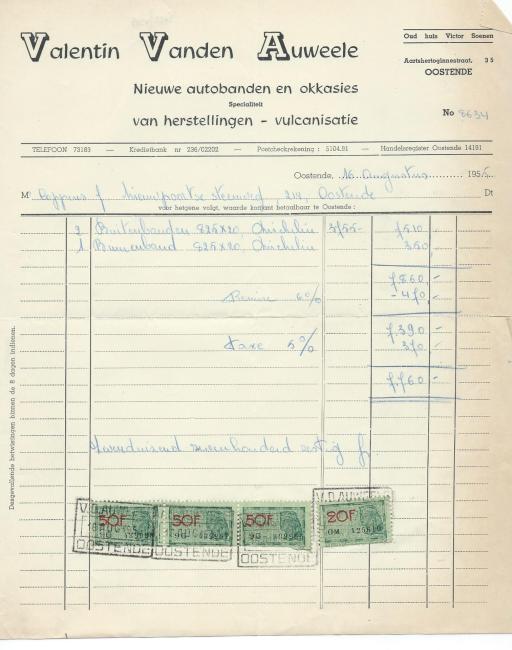 Valentin Vanden Auweele
Oud huis Victor Soenen
Aartshertoginnestraat, 35
OOSTENDE
Nieuwe autobanden en okkasies
Specialiteit
van herstellingen - vulcanisatie
No 8634
TELEFOON 73183 — Kredietbank nr 236/02202 — Postcheckrekening : 5104.91 — Handelsregister Oostende 14191
Oostende, 16 augustus 195
M Nieuwpoortse steenweg Oostende Dt
voor hetgene volgt, waarde kontant betaalbaar te Oostende :
2 Buitenbanden 825X20, Michelin 3755- 7.510,-
1 Binnenband 825X20, Michelin 350,-
7.860,-
Remise 6% - 470,-
7.390,-
taxe 5% 370,-
7.760,-
Zevenduizend zevenhonderd zestig fr
Desgevallende betwistingen binnen de 8 dagen indienen.
V.D.AUWEELE
50F 50F 50F 20F
OOSTENDE OOSTENDE OOSTENDE